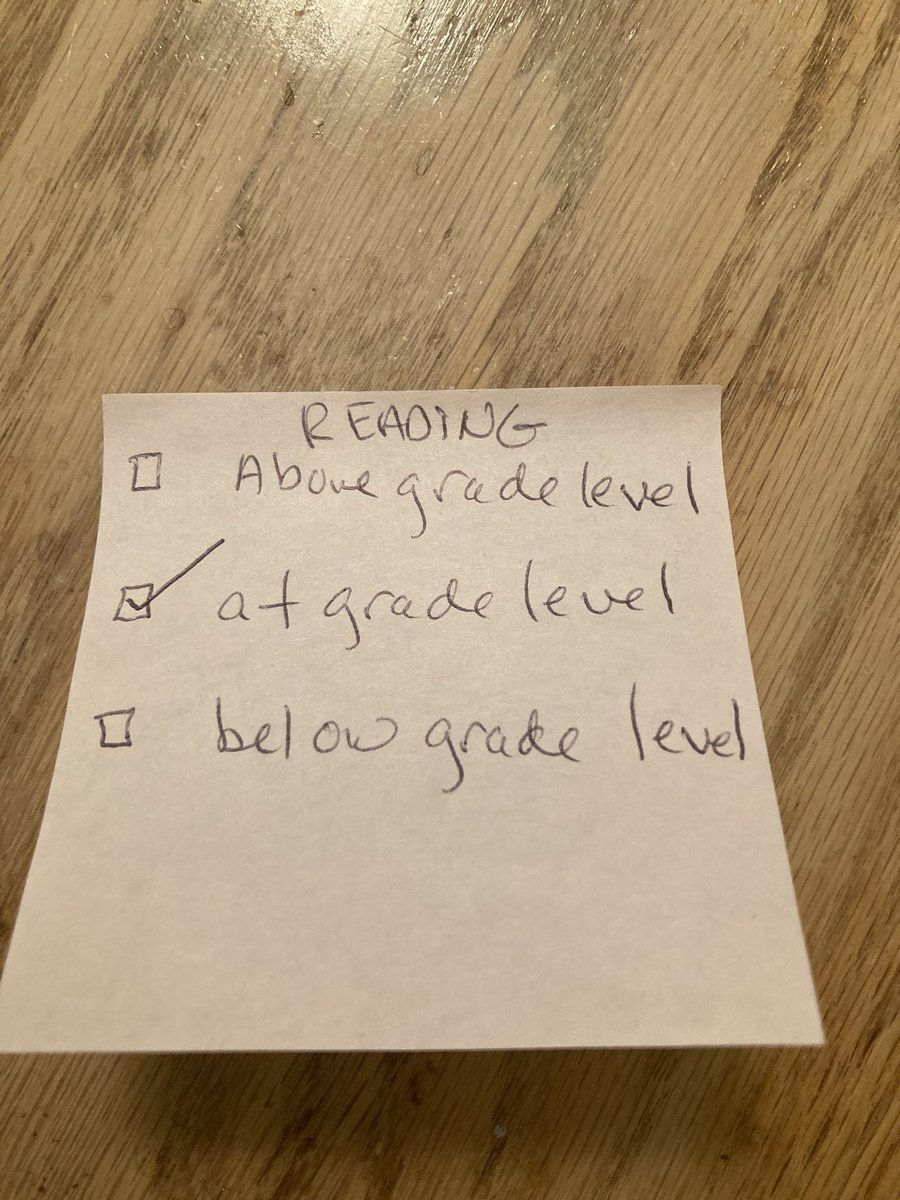 READING
☐ Above grade level
☑ at grade level
☐ below grade level